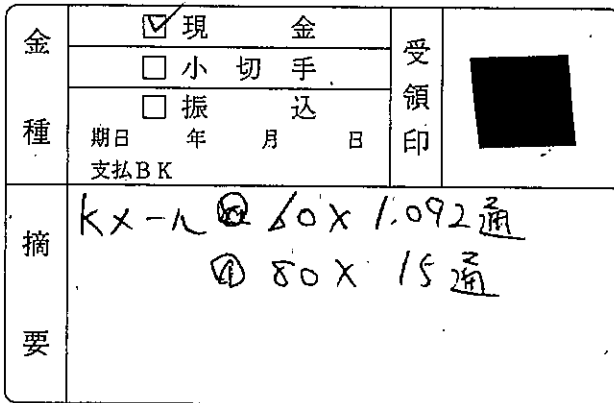 金種
☑ 現金
□ 小切手
□ 振込
期日 年 月 日
支払BK
受領印
摘要
Kメール @ 60×1.092通
@ 80×15通